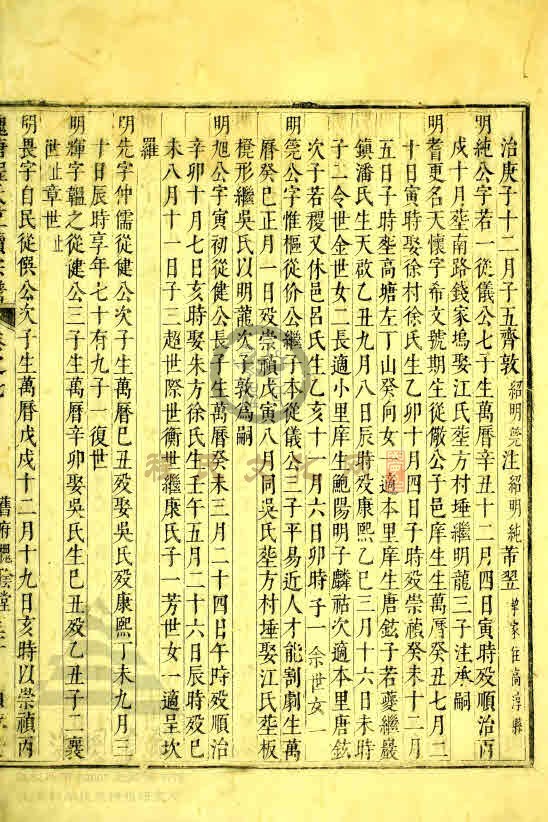 治庚子十二月子五齊敦紹明筦注紹明純芾翌挈家住高淳縣
明純公字若一從儀公七子生萬曆辛丑十二月四日寅時歿順治丙
戌十月塟南路錢家塢娶江氏塟方村埵繼明龍三子注承嗣
明耆更名天懷字希文號期生從儆公子邑庠生生萬曆癸丑七月二
十日寅時娶徐村徐氏生乙卯十月四日子時歿崇禎癸未十二月
五日子時塟高塘左丁山癸向女一適本里庠生唐鉉子若虁繼巖
鎮潘氏生天啟乙丑九月八日辰時歿康熙乙巳三月十六日未時
子二令世余世女二長適小里庠生鮑陽明子麟祐次適本里唐鉉
次子若稷又休邑呂氏生乙亥十一月六日卯時子一佘世女一
明筦公字惟樞從价公繼子本從儀公三子平易近人才能剸劇生萬
曆癸巳正月一日歿崇禎戊寅八月同吳氏塟方村埵娶江氏塟板
櫈形繼吳氏以明龍次子敦爲嗣
明旭公字寅初從健公長子生萬曆癸未三月二十四日午時歿順治
辛卯十月十七日亥時娶朱方徐氏生壬午五月二十六日辰時歿己
未八月十一日子三超世際世衡世繼康氏子一芳世女一適呈坎
羅
明先字仲儒從健公次子生萬曆己丑歿娶吳氏歿康熙丁未九月三
十日辰時享年七十有九子一復世
明輝字韞之從健公三子生萬曆辛卯娶吳氏生己丑歿乙丑子二襄
世止章世止
明畏字自民從僎公次子生萬曆戊戌十二月十九日亥時以崇禎丙